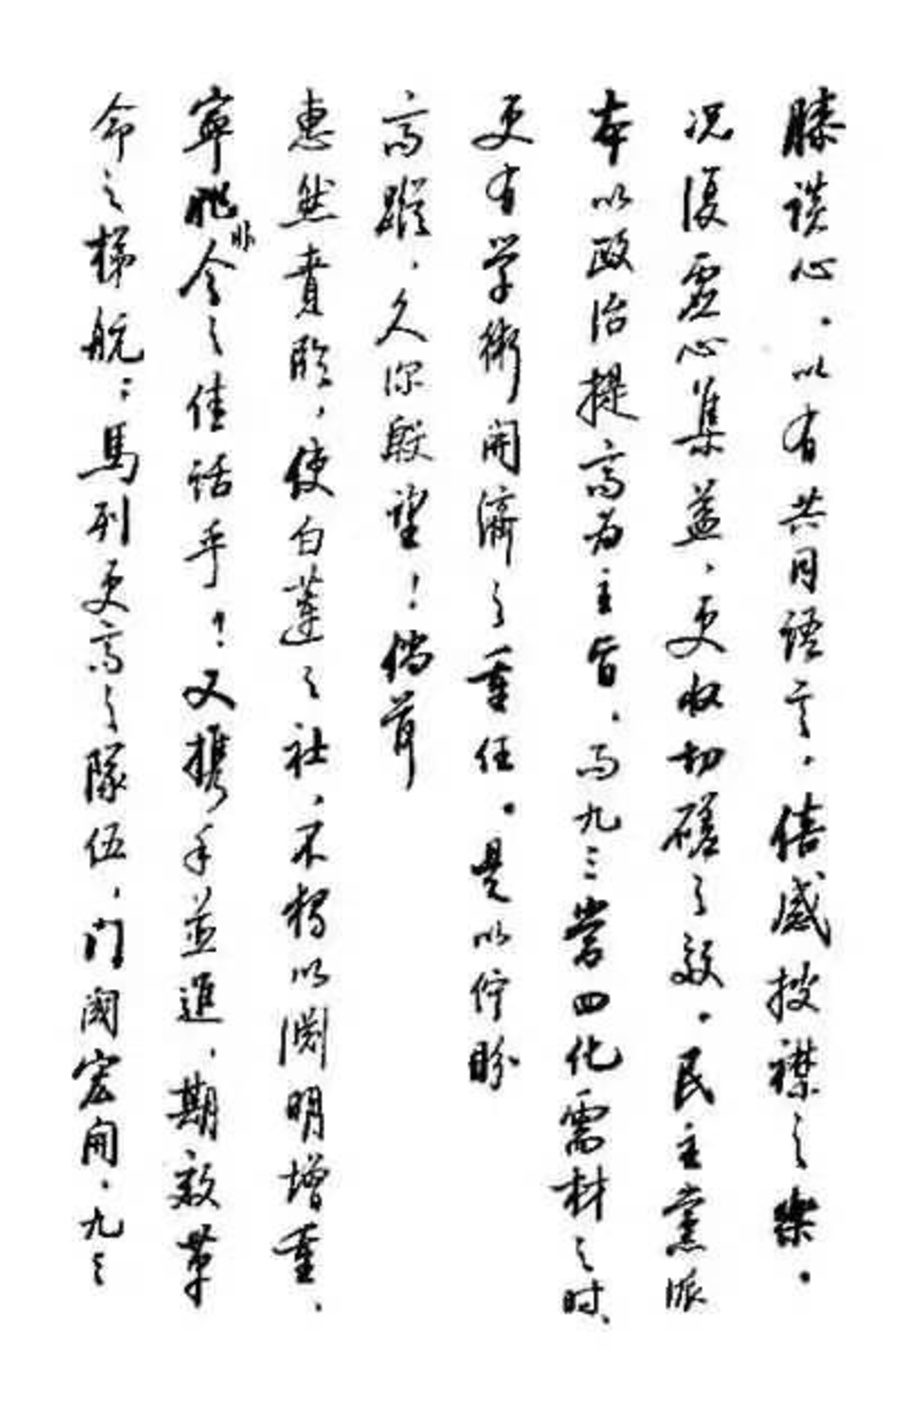 膝谈心，以有共同语言，倍感披襟之乐。
况复虚心集益，更收切磋之效。民主党派
本以政治提高为主旨，而九三当四化需材之时，
更有学术开济之重任。是以伫盼
高踪，久深殷望！倘荷
惠然贲临，使白莲之社，不独以渊明增重，
宁非今之佳话乎！又携手并进，期效革
命之梯航；马列更高之队伍，门阈宏开，九三